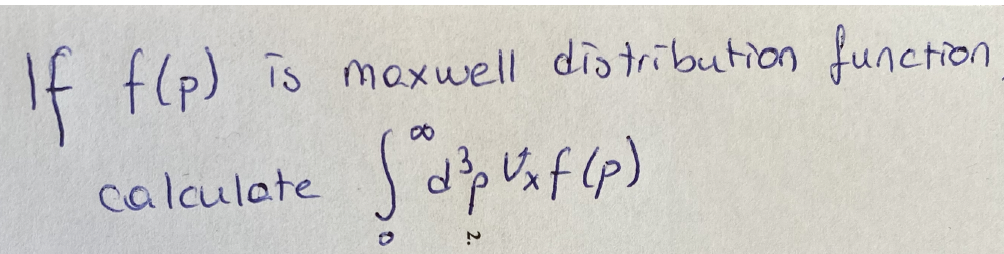 If f(p) is maxwell distribution function.
calculate ∫₀^∞ d³p Vₓ f(p)
2.